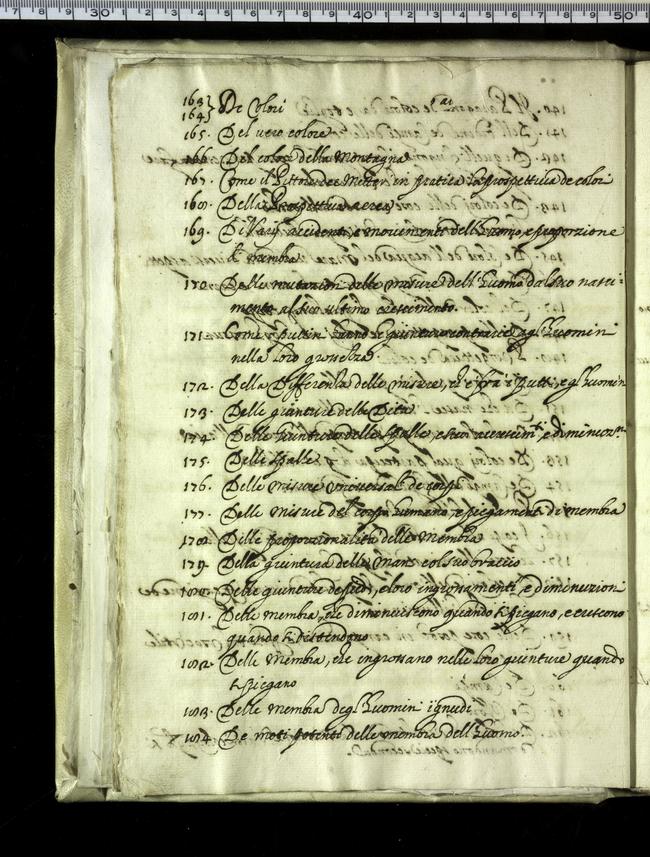 163}
164} De Colori
165. Del vero colore
166. Del colore della Montagna
167. Come il Pittore dee Metter in pratica la prospettiva de colori
168. Della Prospettiva aerea
169. De Varij accidenti, e movimenti dell'Huomo, e proporzione
di membra
170. Delle mutazioni delle misure dell'Huomo dal suo nasci-
mento al suo ultimo crescimento.
171. Come i Puttin hanno le giunture contrarie agl'Huomini
nella loro grossezza
172. Della Differenza delle misure, ch'è fra i Putti, e gl'Huomini
173. Delle giunture delle Dita
174. Delle Giunture delle Spalle, e suoi accrescim.ti, e diminuz.ni
175. Delle Spalle
176. Delle misure universali de corpi
177. Delle misure del corpo humano, e piegamenti di membra
178. Della proporzionalità delle Membra
179. Della giuntura delle Mani col suo braccio
180. Delle giunture de piedi, e loro ingrossamenti, e diminuzioni
181. Delle membra, che diminuiscono quando si piegano, e crescono
quando si distendono
182. Delle Membra, che ingrossano nelle loro giunture quando
si piegano
183. Delle membra degl'Huomini ignudi
184. De moti potenti delle membra dell'Huomo.